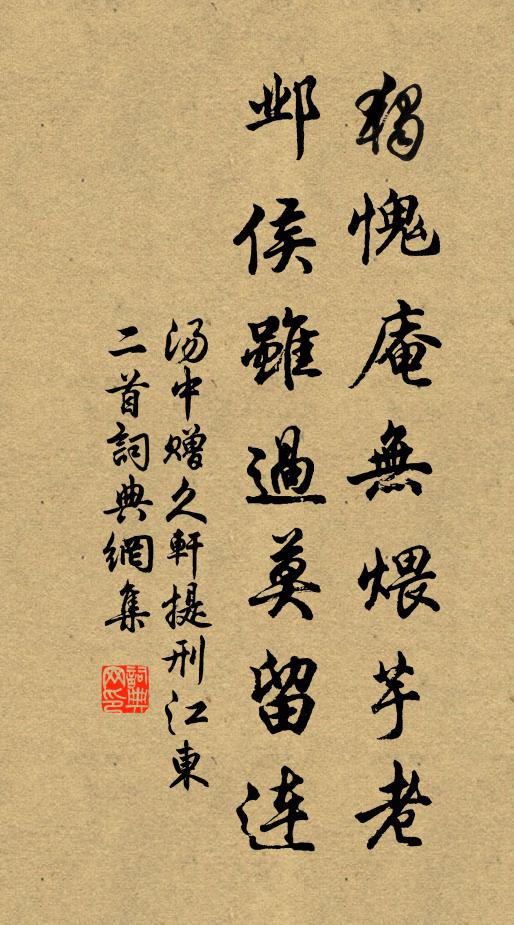 獨愧庵無煨芋老
邺侯雖過莫留连
汤中赠久軒提刑江東
二首詞典網集
詞典网印